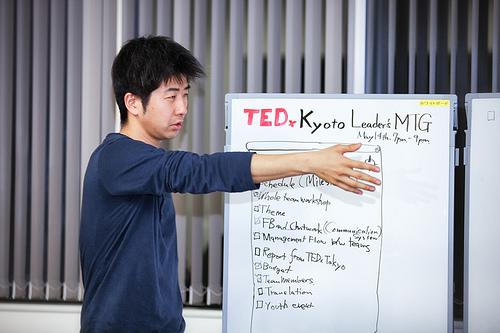 TEDx Kyoto Leader's MTG
May 14th. 7pm - 9pm
Schedule (Miles
Whole team workshop
Theme
FB and Chatwork (Communication)
system
Management Flow b/w teams
Report from TEDxTokyo
Budget
Team Members
Translation
Youth event